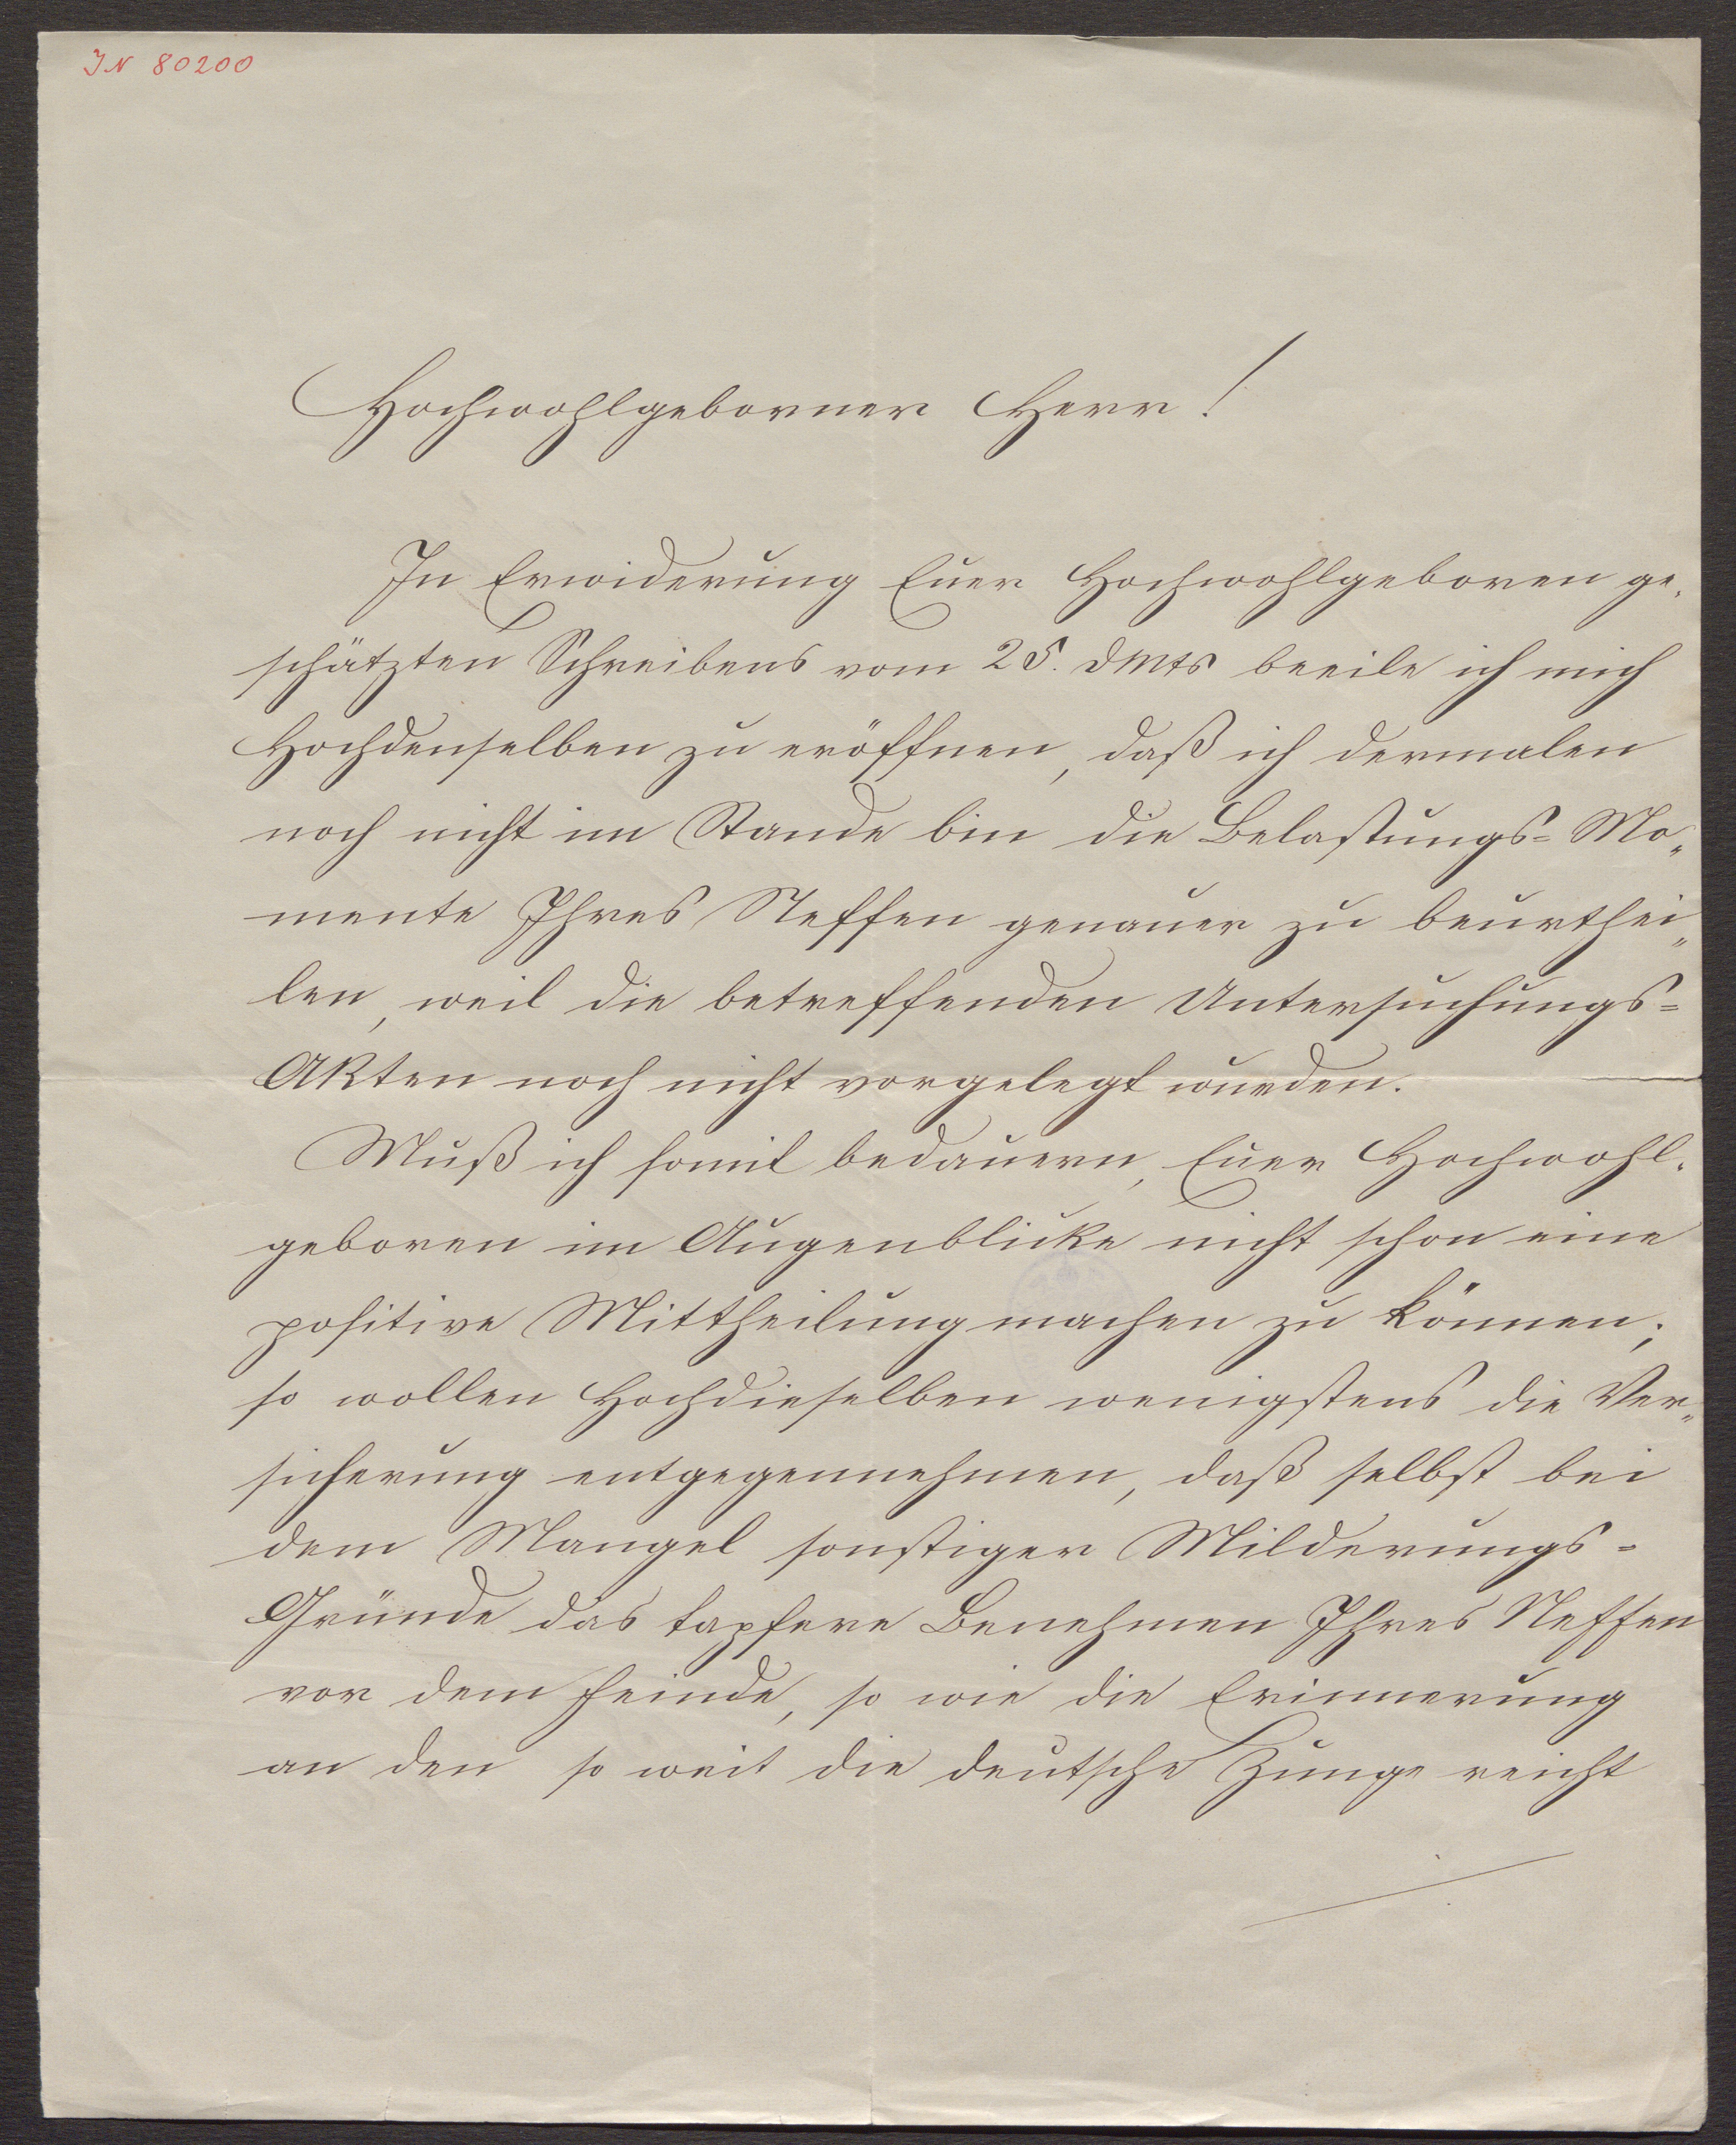 IN 80200
Hochwohlgeborner Herr!
In Erwiderung Euer Hochwohlgeboren ge-
schätzten Schreibens vom 25. dMts beeile ich mich
Hochdenselben zu eröffnen, daß ich dermalen
noch nicht im Stande bin die Belastungs=Mo-
mente Ihres Neffen genauer zu beurthei-
len, weil die betreffenden Untersuchungs=
Akten noch nicht vorgelegt wurden.
Muß ich somit bedauern, Euer Hochwohl-
geboren im Augenblicke nicht schon eine
positive Mittheilung machen zu können;
so wollen Hochdieselben wenigstens die Ver-
sicherung entgegennehmen, daß selbst bei
dem Mangel sonstiger Milderungs=
Gründe das tapfere Benehmen Ihres Neffen
vor dem Feinde, so wie die Erinnerung
an den so weit die deutsche Zunge reicht